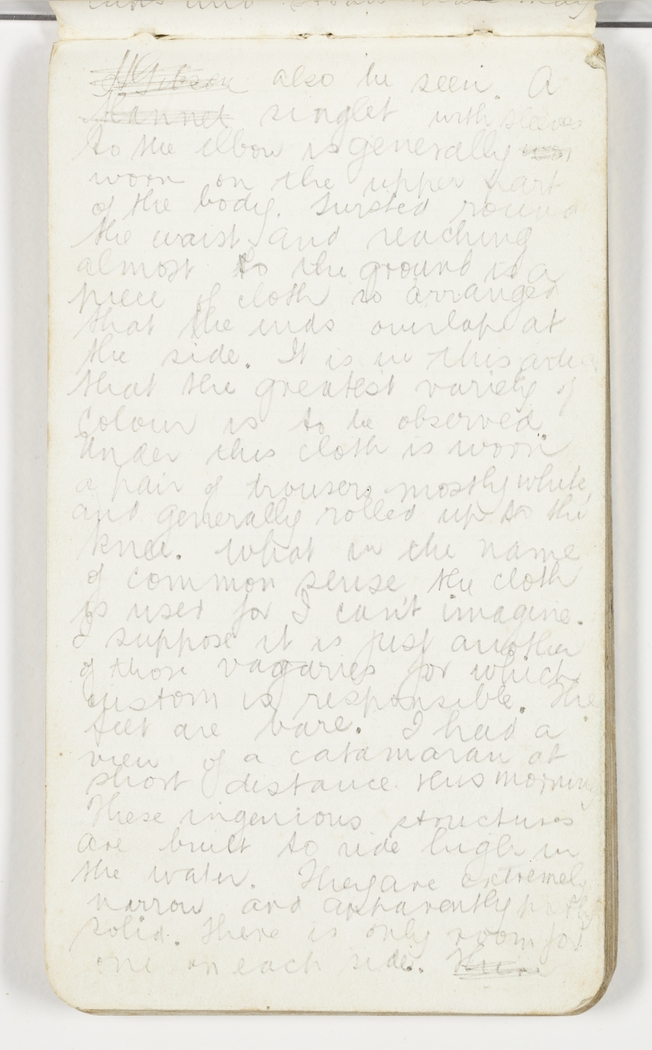 also be seen. A
flannel singlet with sleeves
to the elbow is generally
worn on the upper part
of the body. Twisted round
the waist, and reaching
almost to the ground is a
piece of cloth so arranged
that the ends overlap at
the side. It is in this
that the greatest variety of
colour is to be observed
Under this cloth is worn
a pair of trousers mostly white,
and generally rolled up to the
knee. What in the name
of common sense the cloth
is used for I can't imagine.
I suppose it is just another
of those vagaries for which
custom is responsible. The
feet are bare. I had a
view of a catamaran at
short distance this morning
These ingenious structures
are built to ride high in
the water. They are extremely
narrow and apparently partly
solid. There is only room for
one on each side.